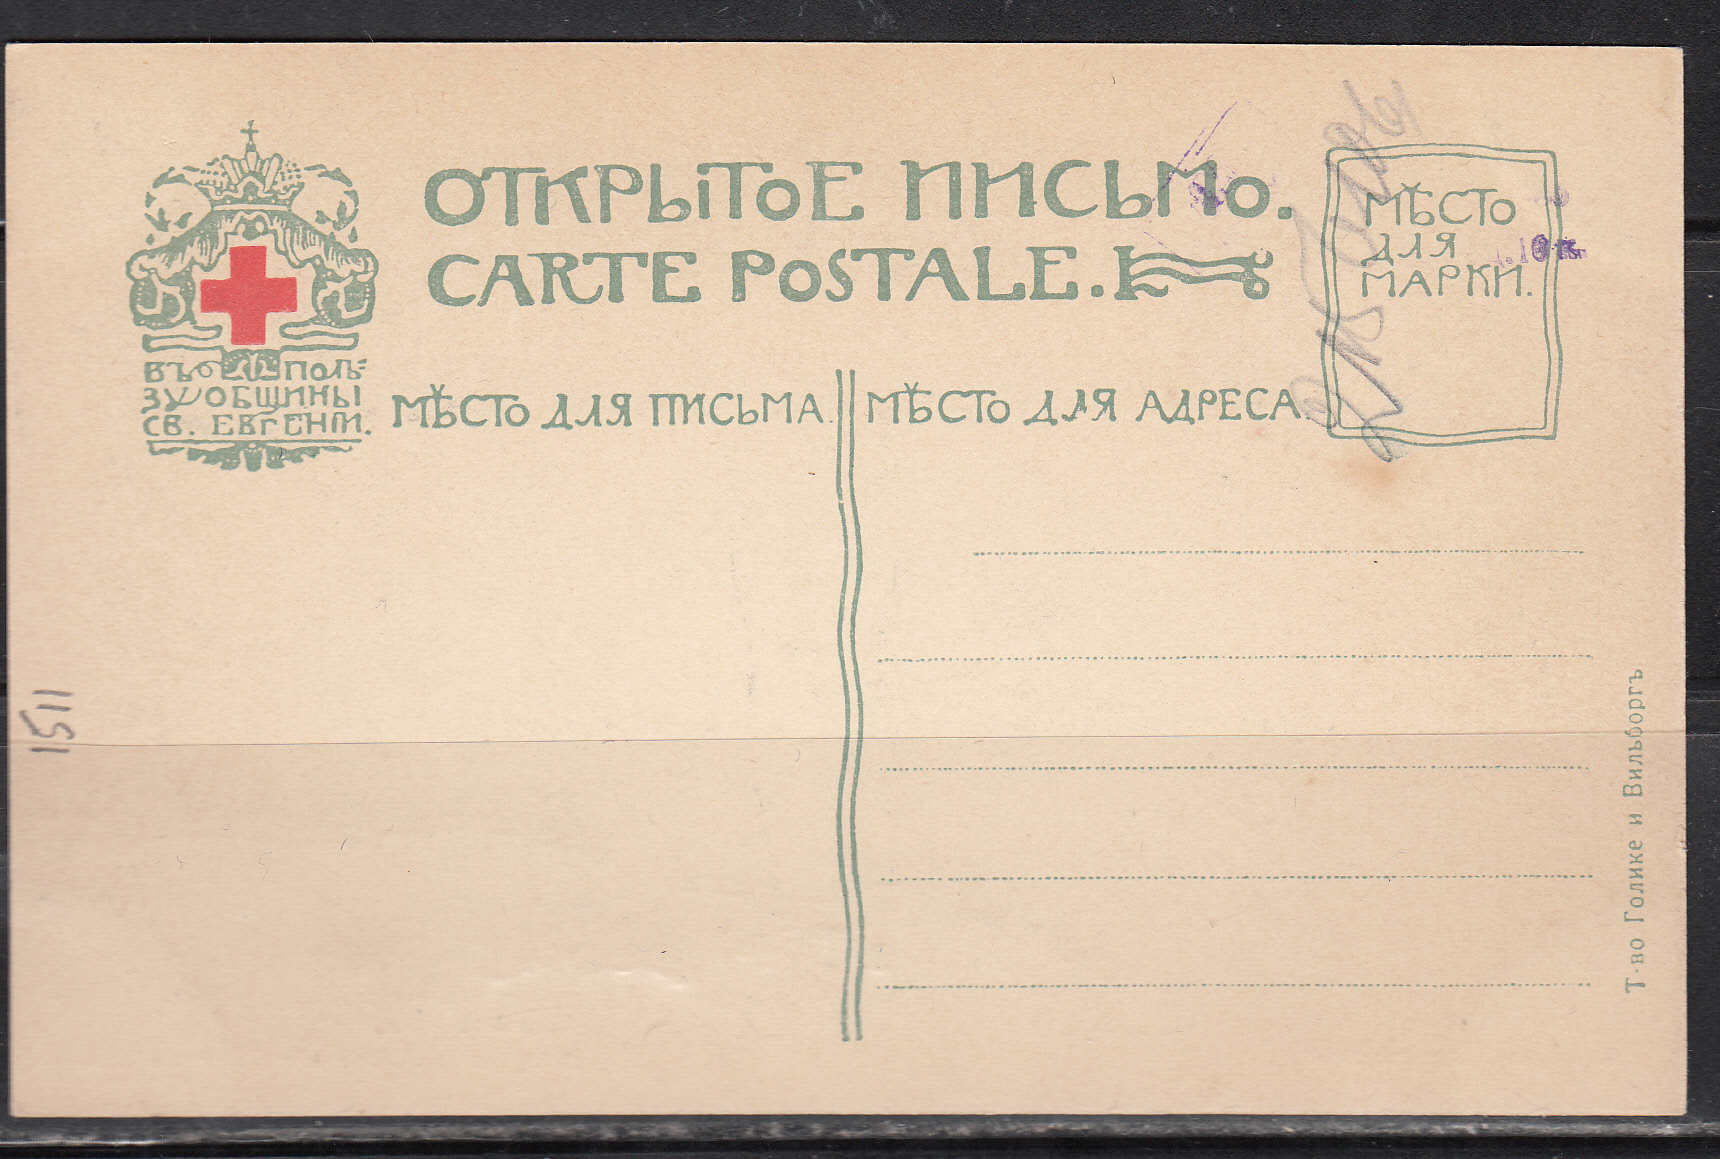 ОТКРЫТОЕ ПИСЬМО.
CARTE POSTALE.
МѢСТО
ДЛЯ
МАРКИ.
ВЪ ПОЛЬ-
ЗУ ОБЩИНЫ
СВ. ЕВГЕНІИ.
МѢСТО ДЛЯ ПИСЬМА.
МѢСТО ДЛЯ АДРЕСА.
1511
Т-во Голике и Вильборгъ